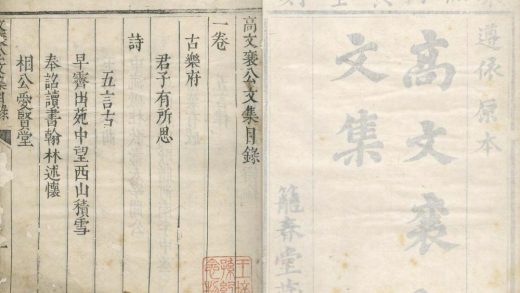 遵依原本
高文襄
文集
籠春堂
高文襄公文集目錄
一卷
古樂府
君子有所思
詩
五言古
早霽出苑中望西山積雪
奉詔讀書翰林述懷
相公愛賢堂